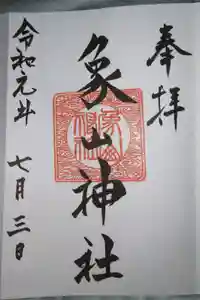 奉拝
象山神社
令和元年 七月三日